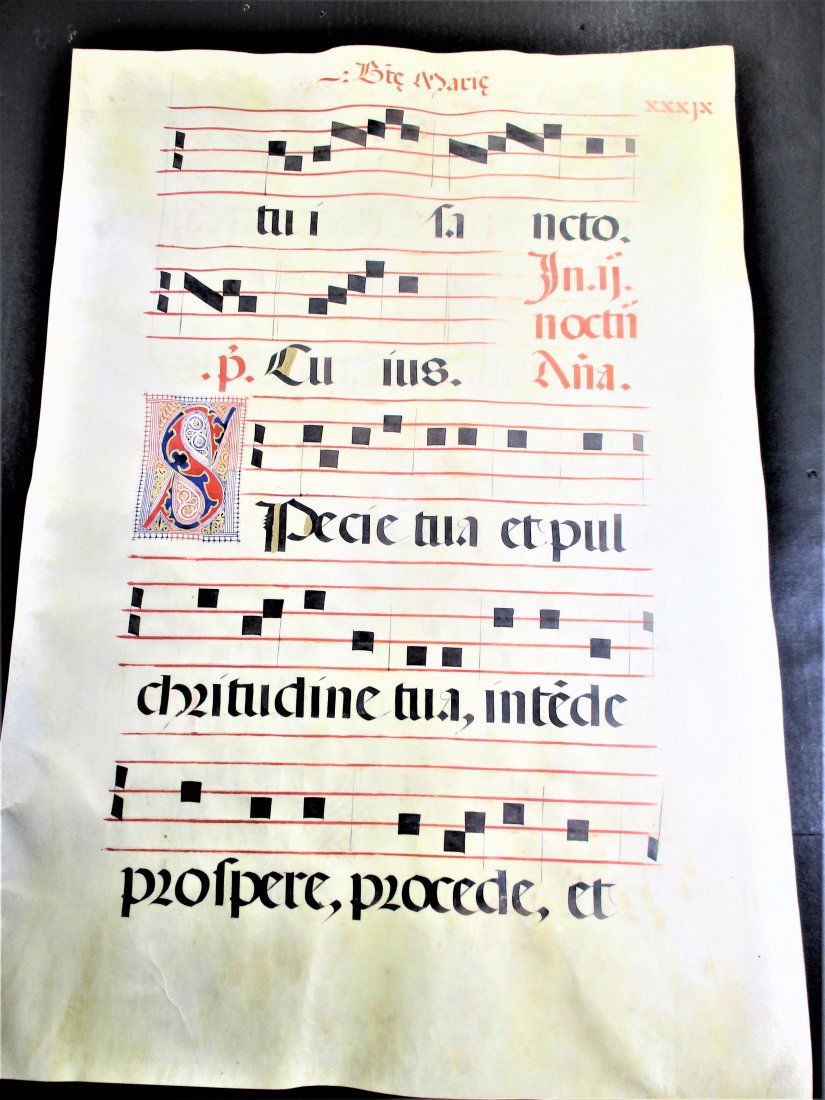 –: Btẽ Marię
xxxjx
tu i sa ncto.
Jn.ij.
noctũ
.p̃. Cu ius. Aña.
SPecie tua et pul
chritudine tua, intẽde
proſpere, procede, et